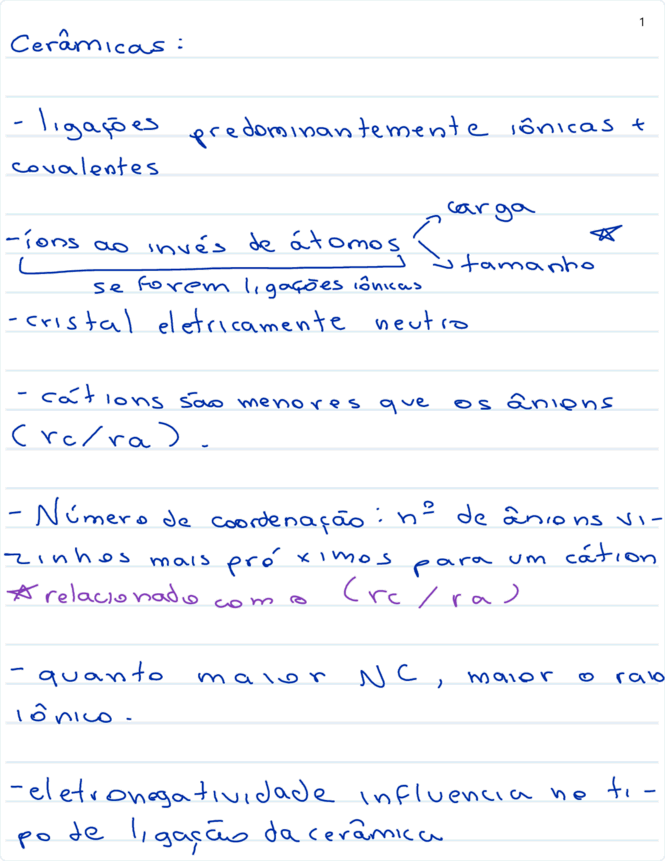 1
Cerâmicas:
- ligações predominantemente iônicas +
covalentes
carga
- íons ao invés de átomos
tamanho
se forem ligações iônicas
- cristal eletricamente neutro
- cátions são menores que os ânions
(rc/ra).
- Número de coordenação: nº de ânions vi-
zinhos mais próximos para um cátion
relacionado com o (rc/ra)
- quanto maior NC, maior o raio
iônico.
- eletronegatividade influencia no ti-
po de ligação da cerâmica